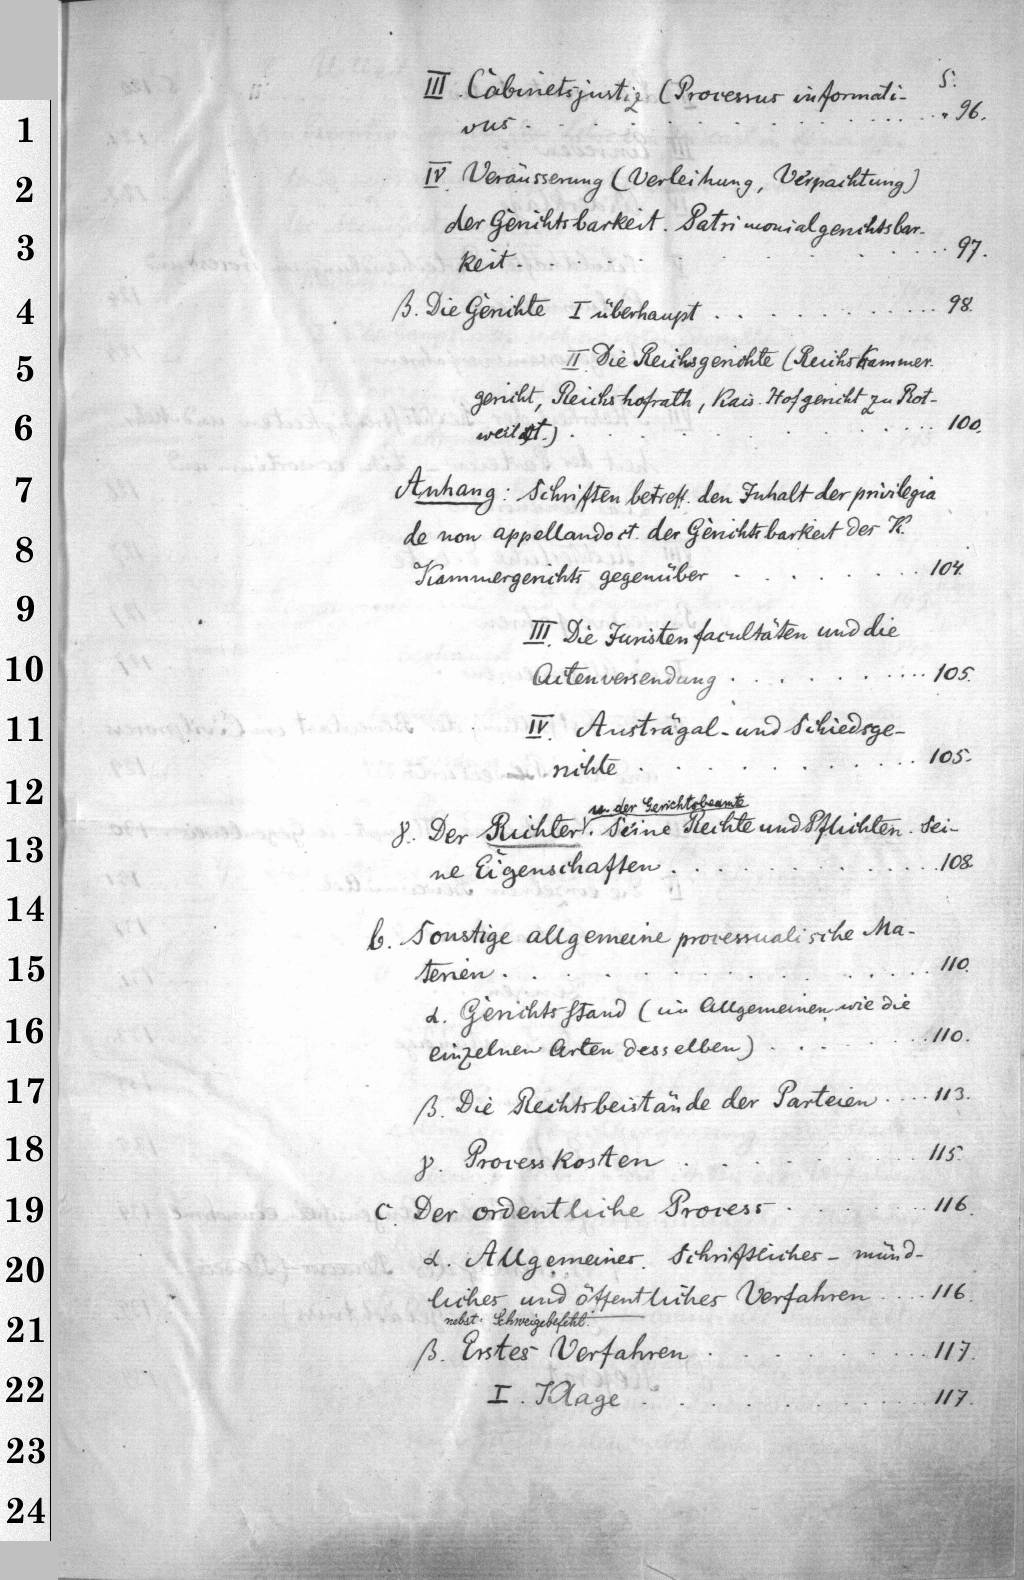 S.
III. Cabinetsjustiz (Processus informati-
vus . . . . . . . . . . . . " 96.
IV. Veräusserung (Verleihung, Verpachtung)
der Gerichtsbarkeit. Patrimonialgerichtsbar-
keit . . . . . . . . . . . . 97.
β. Die Gerichte I überhaupt . . . . . . . . . . . . 98.
II. Die Reichsgerichte (Reichskammer-
gericht, Reichshofrath, Kais. Hofgericht zu Rot-
weil etc.) . . . . . . . . . . . . 100.
Anhang: Schriften betreff. den Inhalt der privilegia
de non appellando ct. der Gerichtsbarkeit des K.
Kammergerichts gegenüber . . . . . . . . . 104.
III. Die Juristenfacultäten und die
Actenversendung . . . . . . . . . . . 105.
IV. Austrägal- und Schiedsge-
richte . . . . . . . . . . . 105.
u. der Gerichtsbeamte
γ. Der Richter. Seine Rechte und Pflichten. Sei-
ne Eigenschaften . . . . . . . . . . . 108.
b. Sonstige allgemeine processualische Ma-
terien . . . . . . . . . . . . 110.
α. Gerichtsstand (im Allgemeinen wie die
einzelnen Arten desselben) . . . . . . . 110.
β. Die Rechtsbeistände der Parteien . . . . 113.
γ. Processkosten . . . . . . . . 115.
c. Der ordentliche Process . . . . . . . 116.
α. Allgemeines. Schriftliches - münd-
liches und öffentliches Verfahren . . . . 116.
nebst Schweigebefehl
β. Erstes Verfahren . . . . . . . . . 117.
I. Klage . . . . . . . . . . 117.
1
2
3
4
5
6
7
8
9
10
11
12
13
14
15
16
17
18
19
20
21
22
23
24